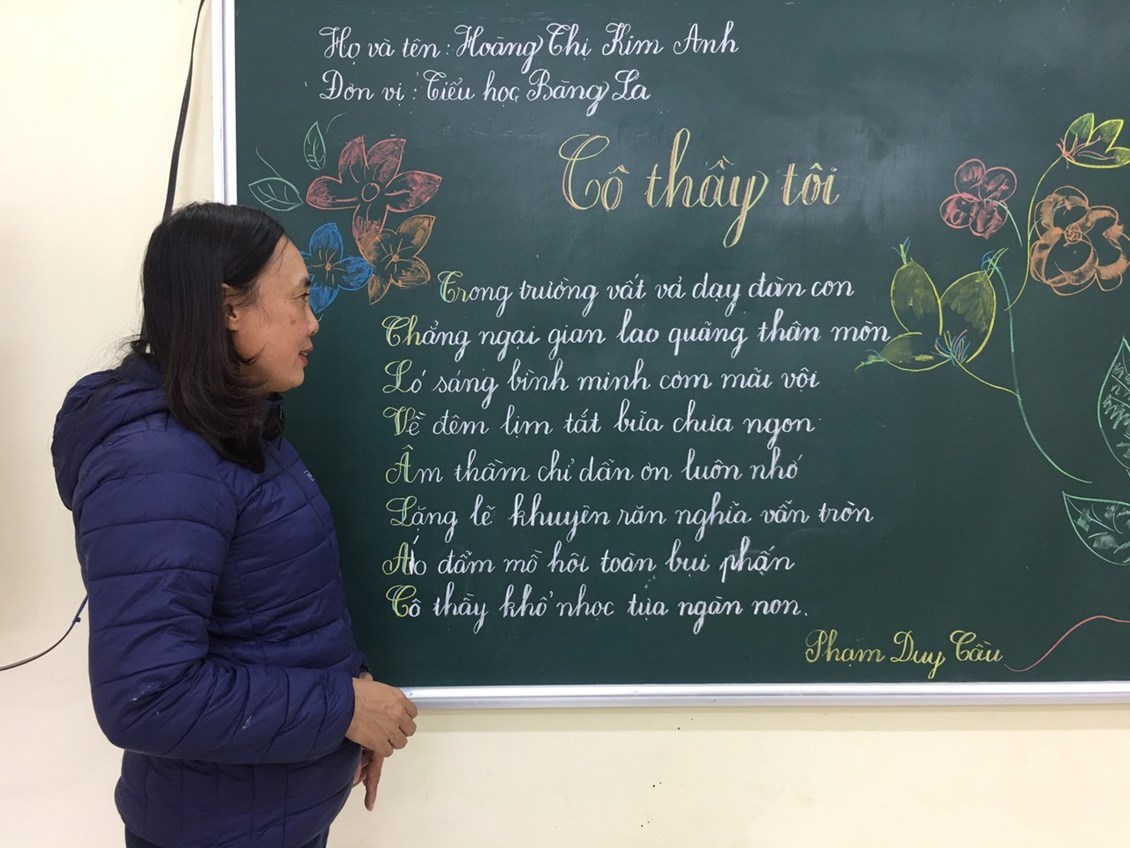 Họ và tên: Hoàng Thị Kim Anh
Đơn vị: Tiểu học Bàng La
Cô thầy tôi
Trong trường vất vả dạy đàn con
Chẳng ngại gian lao quãng thân mòn
Ló sáng bình minh cơm mãi vội
Về đêm lịm tắt bữa chưa ngon
Âm thầm chỉ dẫn ơn luôn nhớ
Lặng lẽ khuyên răn nghĩa vẫn tròn
Áo đẫm mồ hôi toàn bụi phấn
Cô thầy khổ nhọc tựa ngàn non.
Phạm Duy Cầu